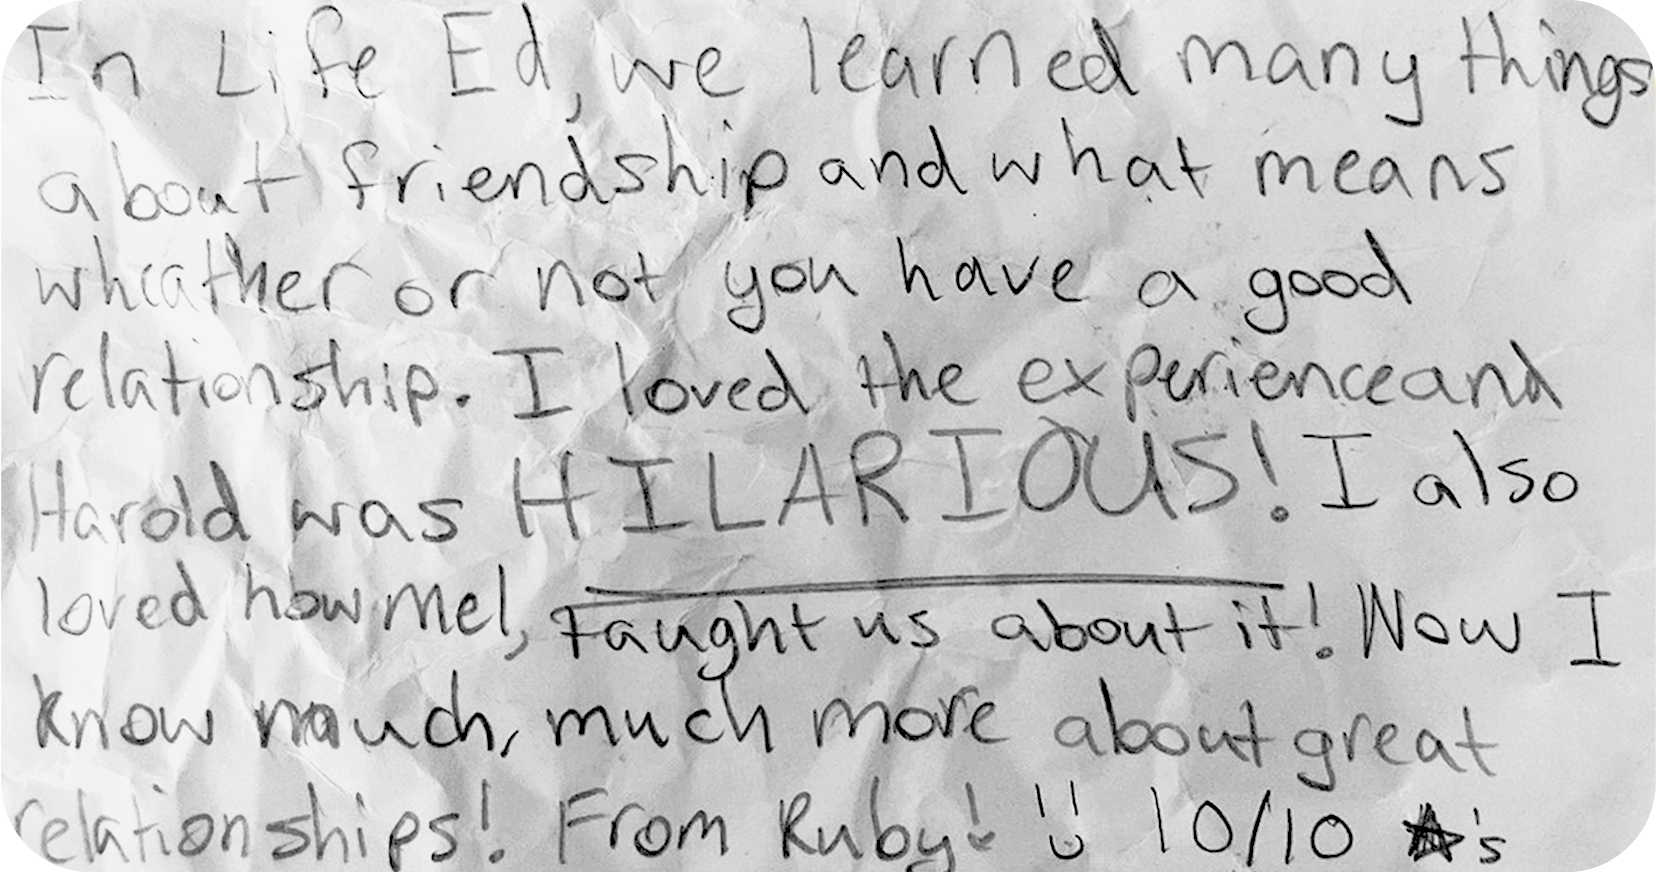 In Life Ed, we learned many things
about friendship and what means
wheather or not you have a good
relationship. I loved the experience and
Harold was HILARIOUS! I also
loved how Mel, taught us about it! Now I
know much, much more about great
relationships! From Ruby! :) 10/10 ★'s